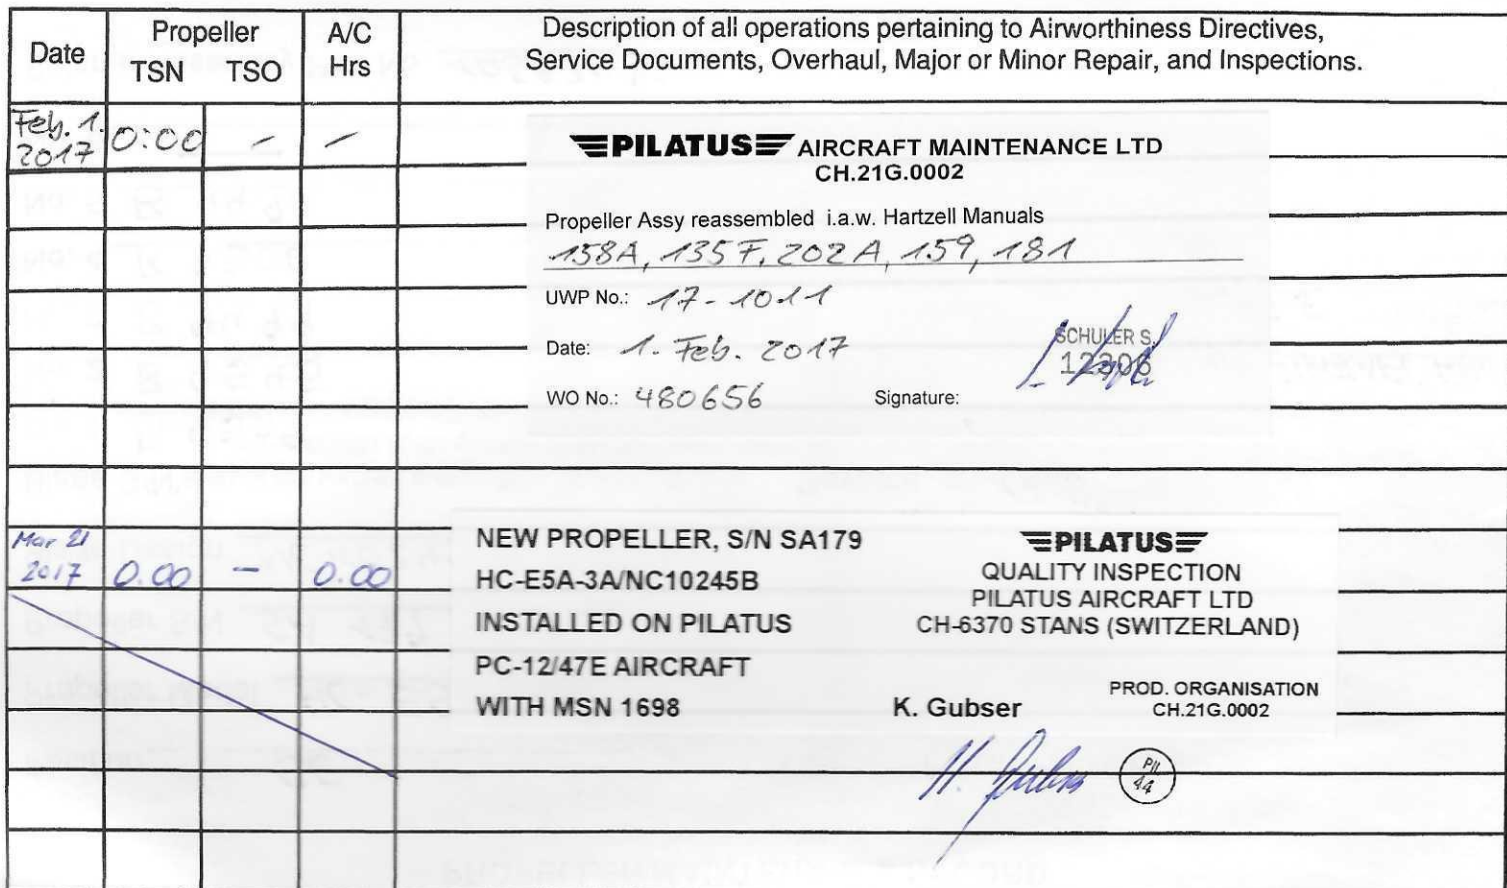 Date
Propeller
TSN TSO
A/C
Hrs
Description of all operations pertaining to Airworthiness Directives,
Service Documents, Overhaul, Major or Minor Repair, and Inspections.
Feb. 1.
2017
0:00 - -
PILATUS AIRCRAFT MAINTENANCE LTD
CH.21G.0002
Propeller Assy reassembled i.a.w. Hartzell Manuals
158A, 135F, 202A, 159, 181
UWP No.: 17-1011
Date: 1. Feb. 2017
SCHULER S.
12306
WO No.: 480656 Signature:
Mar 21
2017 0.00 - 0.00
NEW PROPELLER, S/N SA179
HC-E5A-3A/NC10245B
INSTALLED ON PILATUS
PC-12/47E AIRCRAFT
WITH MSN 1698
PILATUS
QUALITY INSPECTION
PILATUS AIRCRAFT LTD
CH-6370 STANS (SWITZERLAND)
K. Gubser
PROD. ORGANISATION
CH.21G.0002
PIL
44